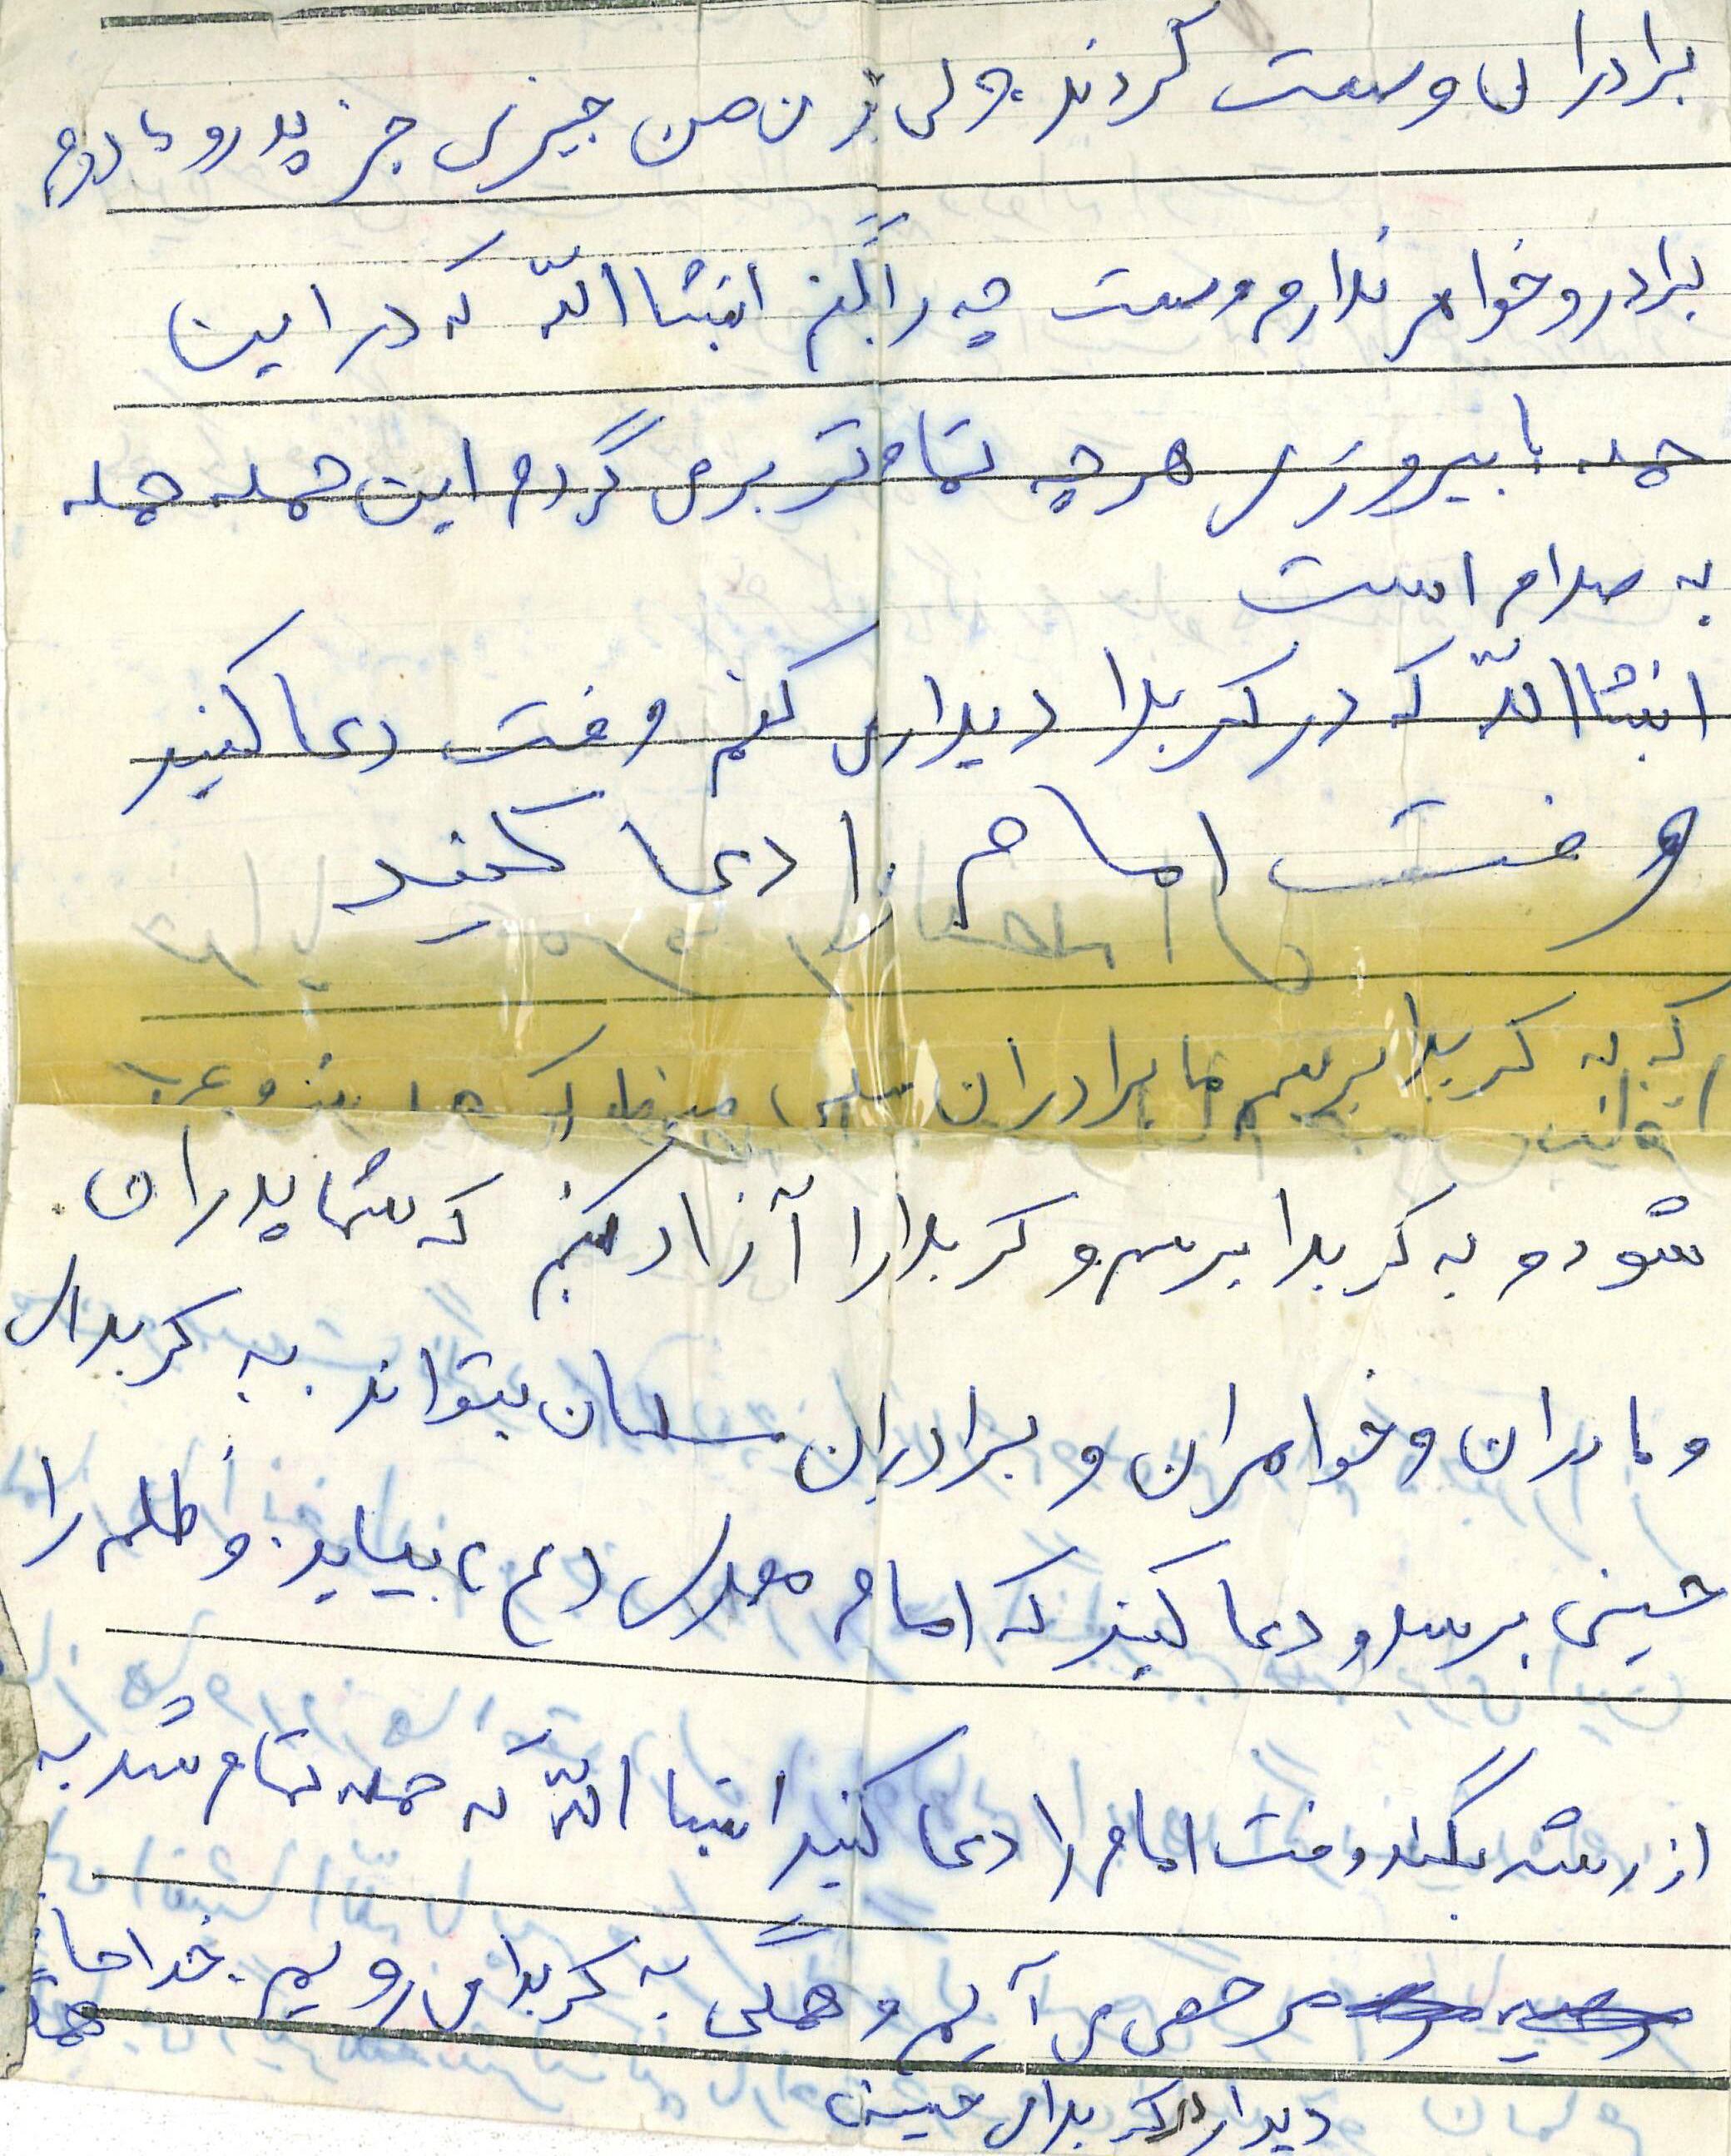 برادران وست کردند ولی من چیزی جز پدر و مادر و
برادر و خواهر ندارم وست چه را بکنم انشاالله که در این
حمله با پیروزی هر چه تمام تر برمی گردم این حمله حمله
به صدام است
انشاالله که در کربلا دیداری کنم وقت دعا کنید
وقت امام را دعا کنید
که به کربلا برسم ما برادران
شود و به کربلا برسم و کربلا را آزاد کنم که شما پدران
و مادران و خواهران و برادران مسلمان بتواند به کربلای
حسینی برسد و دعا کنید که امام مهدی (ع) بیاید. و ظلمه را
از ریشه بکند وقت امام را دعا کنید انشا الله که حمله تمام شد به
مرخصی می آیم و همگی به کربلا می رویم. خداحافظ
دیدار در کربلای حسینی